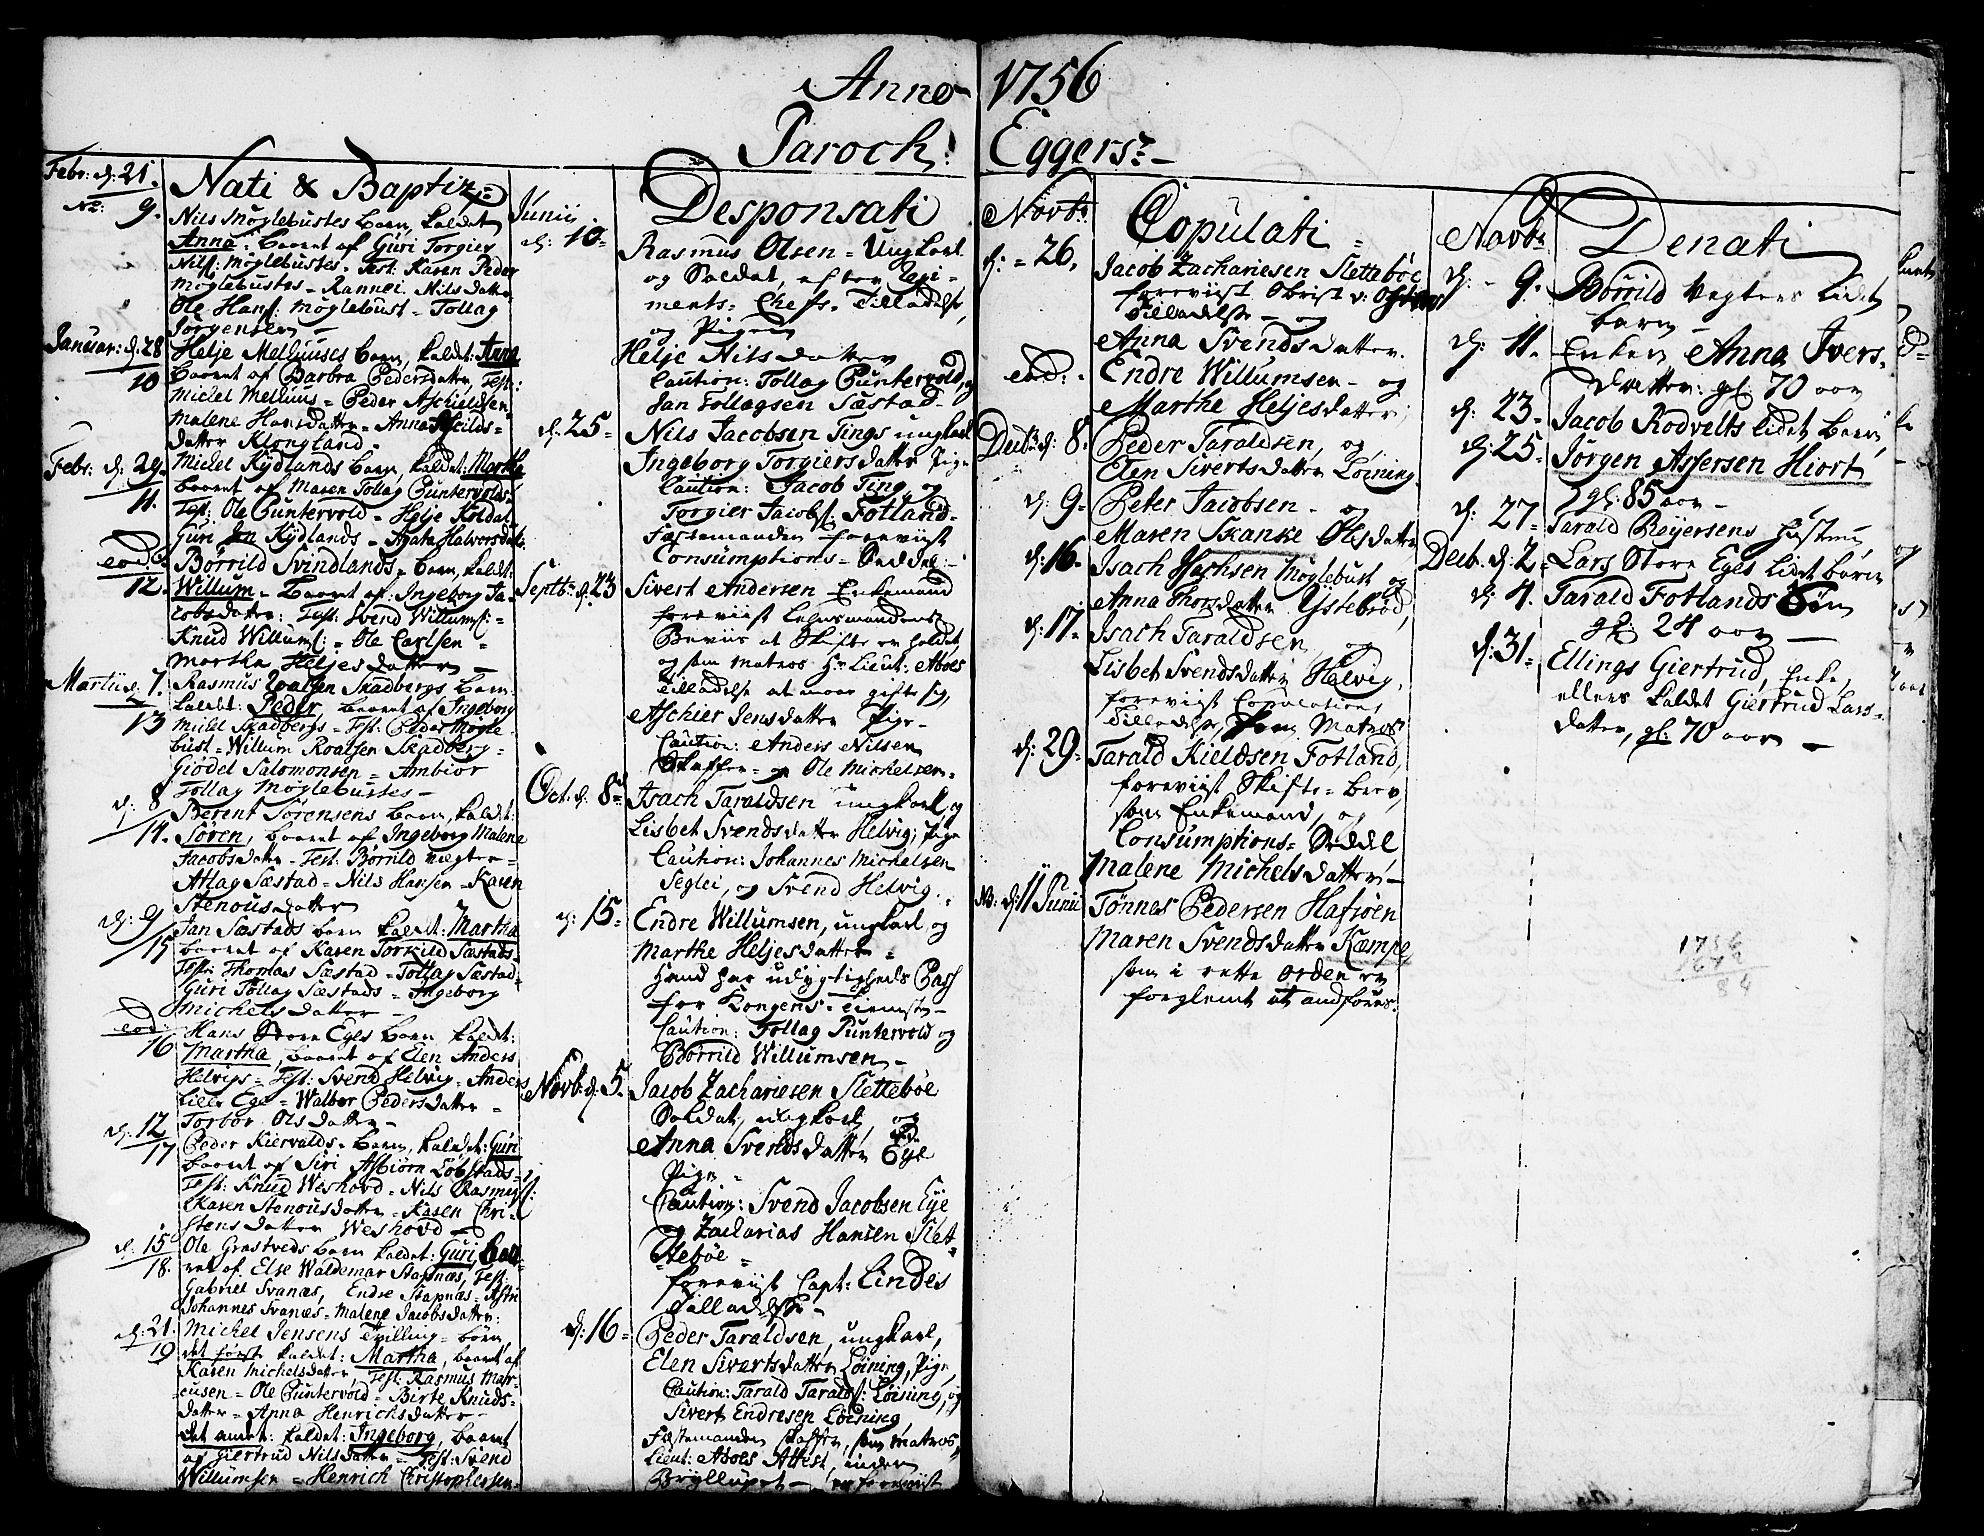 Anno 1756
Paroch: Eggers:
Febr: d: 21.
No: 9.
Nati & Baptiz:
Nils Møglebustes barn, kaldet
Anna: baaret af Guri Torgier
Nils: Møglebustes. Test: Karen Peder
Møglebustes - Rannei Nilsdatter
Ole Hans: Møglebust - Tollag
Jørgensen -
Januar: d: 28
10
Helje Melhuuses barn, kaldet: Anna
baaret af Barbra Pedersdatter, Test:
Michel Melhuus - Peder Aschieldsen
Malene Hansdatter - Anna Aschilds-
datter Klongland -
Febr: d: 29.
11.
Michel Kydlands barn, kaldet: Martha
baaret af Maren Tollag Puntervolds
Test: Ole Puntervold - Helje Koldal
Guri Jan Kydlands - Agata Halvorsdatr.
eod:
12.
Børrild Svindlands barn, kaldt:
Willum - baaret af Ingeborg Ja-
cobsdatter. Test: Svend Willums:
Knud Willums: - Ole Carlsen -
Martha Heljesdatter -
Martii d: 7.
13
Rasmus Roalsen Skadbergs barn
kaldet: Peder baaret af Ingeborg
Michel Skadbergs - Test: Peder Møgle-
bust - Willum Roalsen Skadberg -
Giødel Salomonsen - Ambior
Tollag Møglebustes -
d: 8
14.
Berent Sørensens barn, kaldet:
Søren, baaret af Ingeborg Malene
Jacobsdatter - Test: Børrild Vegter -
Atlag Sæstad - Nils Hansen - Karen
Stenousdatter
d: 9
15
Jan Sæstads barn kaldt: Martha
baaret af Karen Torkild Sæstads
Test: Thomas Sæstad - Tollag Sæstad -
Guri Tollag Sæstads - Ingeborg
Michelsdatter -
eod:
16
Hans Store Eges barn kaldet:
Martha, baaret af Elen Anders
Helvigs - Test: Svend Helvig - Anders
Lille Ege - Walbor Pedersdatter -
Torbor Olsdatter -
d: 12
17
Peder Kiervalds barn, kaldet: Guri
baaret af Siri Asbiørn Løbstads -
Test: Knud Weshovd - Nils Rasmus:
Karen Stenousdatter - Karen Chri-
stensdatter Weshovd -
d: 15
18.
Ole Grastveds barn kaldet: Guri baa-
ret af Else Waldemar Stapnæs, Test:
Gabriel Svanæs, Endre Stapnæs - Astri
Johannes Svanæs - Malene Jacobsdatter.
d: 21.
19
Michel Jensens Tvilling-børn,
det først kaldet: Martha, baaret af
Karen Michelsdatter, Test: Rasmus Mar-
cusen - Ole Puntervold - Birte Knuds-
datter - Anna Henrichsdatter -
det andet kaldet: Ingeborg, baaret
af Giertrud Nilsdatter - Test: Svend
Willumsen - Henrich Christophersen -
Junii
d: 10 -
Desponsati
Rasmus Olsen - Ungkarl
og Soldat, efter Regi-
ments Chefs Tilladelse,
og Pigen
Helje Nilsdatter
Caution: Tollag Puntervold, og
Jan Tollagsen Sæstad -
d: 25 -
Nils Jacobsen Tings ungkarl
Ingeborg Torgiersdatter Pige
Caution: Jacob Ting, og
Torgier Jacobs: Fotland -
Fæstemanden foreviist
Consumptions-Seddel -
Septbr: d: 23
Sivert Andersen Enkemand
foreviist Lehnsmandens
Beviis at Skifte er holdet,
og som Matros Hr Lieut: Aboes
Tilladelse at maa gifte sig,
Aschier Jensdatter Pige -
Caution: Anders Nilsen
Skaffer - og Ole Michelsen -
Oct: d: 8
Isach Taraldsen ungkarl, og
Lisbet Svendsdatter Helvig; Pige
Caution: Johannes Michelsen
Seglei, og Svend Helvig.
d: 15 -
Endre Willumsen, ungkarl og
Marthe Heljesdatter -
Hand har udygtigheds Pass
for Kongens Tieniste -
Caution: Tollag Puntervold og
Børrild Willumsen -
Novb: d: 5.
Jacob Zachariesen Slettebøe
Soldat, ungkarl, og
Anna Svendsdatter Eye
Pige -
Caution: Svend Jacobsen Eye
og Zacharias Hansen Slet-
tebøe -
foreviist Capt: Lindes
Tilladelse -
d: 16 -
Peder Taraldsen, ungkarl,
Elen Sivertsdatter Løining, Pige,
Caution: Tarald Taralds: Løining, og
Sivert Endresen Løining,
Fæstemanden skaffer, som Matros,
Lieut: Aboes Attest, inden
Bryllupet - er foreviist
Novbr:
d: - 26,
Copulati -
Jacob Zachariesen Slettebøe
foreviist Skrift
Tilladelse - og
Anna Svendsdatter.
eod: -
Endre Willumsen - og
Marthe Heljesdatter;
Decbr: d: 8.
Peder Taraldsen, og
Elen Sivertsdatter Løining
d: 9 -
Peter Jacobsen - og
Maren Skanke Olsdatter
d: 16 -
Isach Isachsen Møglebust og
Anna Thorsdatter Ystebrød,
d: 17 -
Isach Taraldsen, og
Lisbet Svendsdatter Helvig,
foreviist Copulations
Tilladelse, som Matros
d: 29 -
Tarald Kieldsen Fotland,
foreviist Skifte-brev,
som Enkemand, og
Consumptions-Seddel
Malene Michelsdatter -
NB: d: 11 Junii
Tønnes Pedersen Hafsøen
Maren Svendsdatter Kæmpe
som i rette orden er
forglemt at andføres.
Novbr
d: - 9.
Denati
Børrild Vegters lidet
barn -
d: 11.
Enken Anna Ivers-
datter: gl: 70 aar
d: 23 -
Jacob Rodvelts lidet barn,
d: 25.
Jørgen Assersen Hiort
gl: 85 aar -
d: 27 -
Tarald Reyersens Hustru
Decb. d: 2 -
Lars Store Eges lidet barn
d: 4.
Tarald Fotlands Søn
gl: 24 aar -
d: 31 -
Ellings Giertrud, Enke,
ellers kaldet Giertrud Lars-
datter, gl: 70 aar -
1756
1672
84